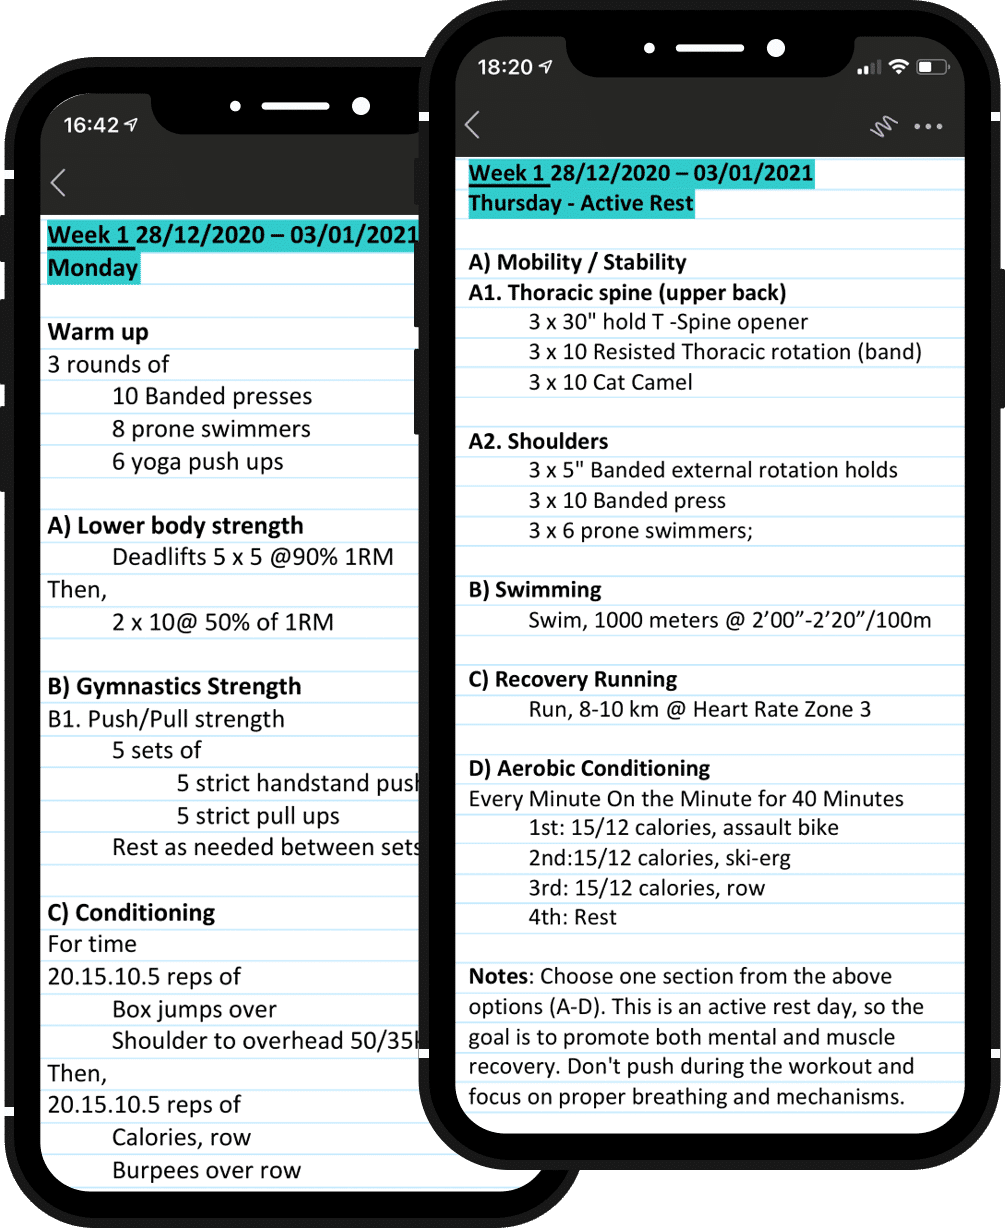 16:42
Week 1 28/12/2020 – 03/01/2021
Monday
Warm up
3 rounds of
10 Banded presses
8 prone swimmers
6 yoga push ups
A) Lower body strength
Deadlifts 5 x 5 @90% 1RM
Then,
2 x 10@ 50% of 1RM
B) Gymnastics Strength
B1. Push/Pull strength
5 sets of
5 strict handstand
5 strict pull ups
Rest as needed between sets
C) Conditioning
For time
20.15.10.5 reps of
Box jumps over
Shoulder to overhead 50/35
Then,
20.15.10.5 reps of
Calories, row
Burpees over row
18:20
Week 1 28/12/2020 – 03/01/2021
Thursday - Active Rest
A) Mobility / Stability
A1. Thoracic spine (upper back)
3 x 30" hold T -Spine opener
3 x 10 Resisted Thoracic rotation (band)
3 x 10 Cat Camel
A2. Shoulders
3 x 5" Banded external rotation holds
3 x 10 Banded press
3 x 6 prone swimmers;
B) Swimming
Swim, 1000 meters @ 2’00”-2’20”/100m
C) Recovery Running
Run, 8-10 km @ Heart Rate Zone 3
D) Aerobic Conditioning
Every Minute On the Minute for 40 Minutes
1st: 15/12 calories, assault bike
2nd:15/12 calories, ski-erg
3rd: 15/12 calories, row
4th: Rest
Notes: Choose one section from the above
options (A-D). This is an active rest day, so the
goal is to promote both mental and muscle
recovery. Don't push during the workout and
focus on proper breathing and mechanisms.